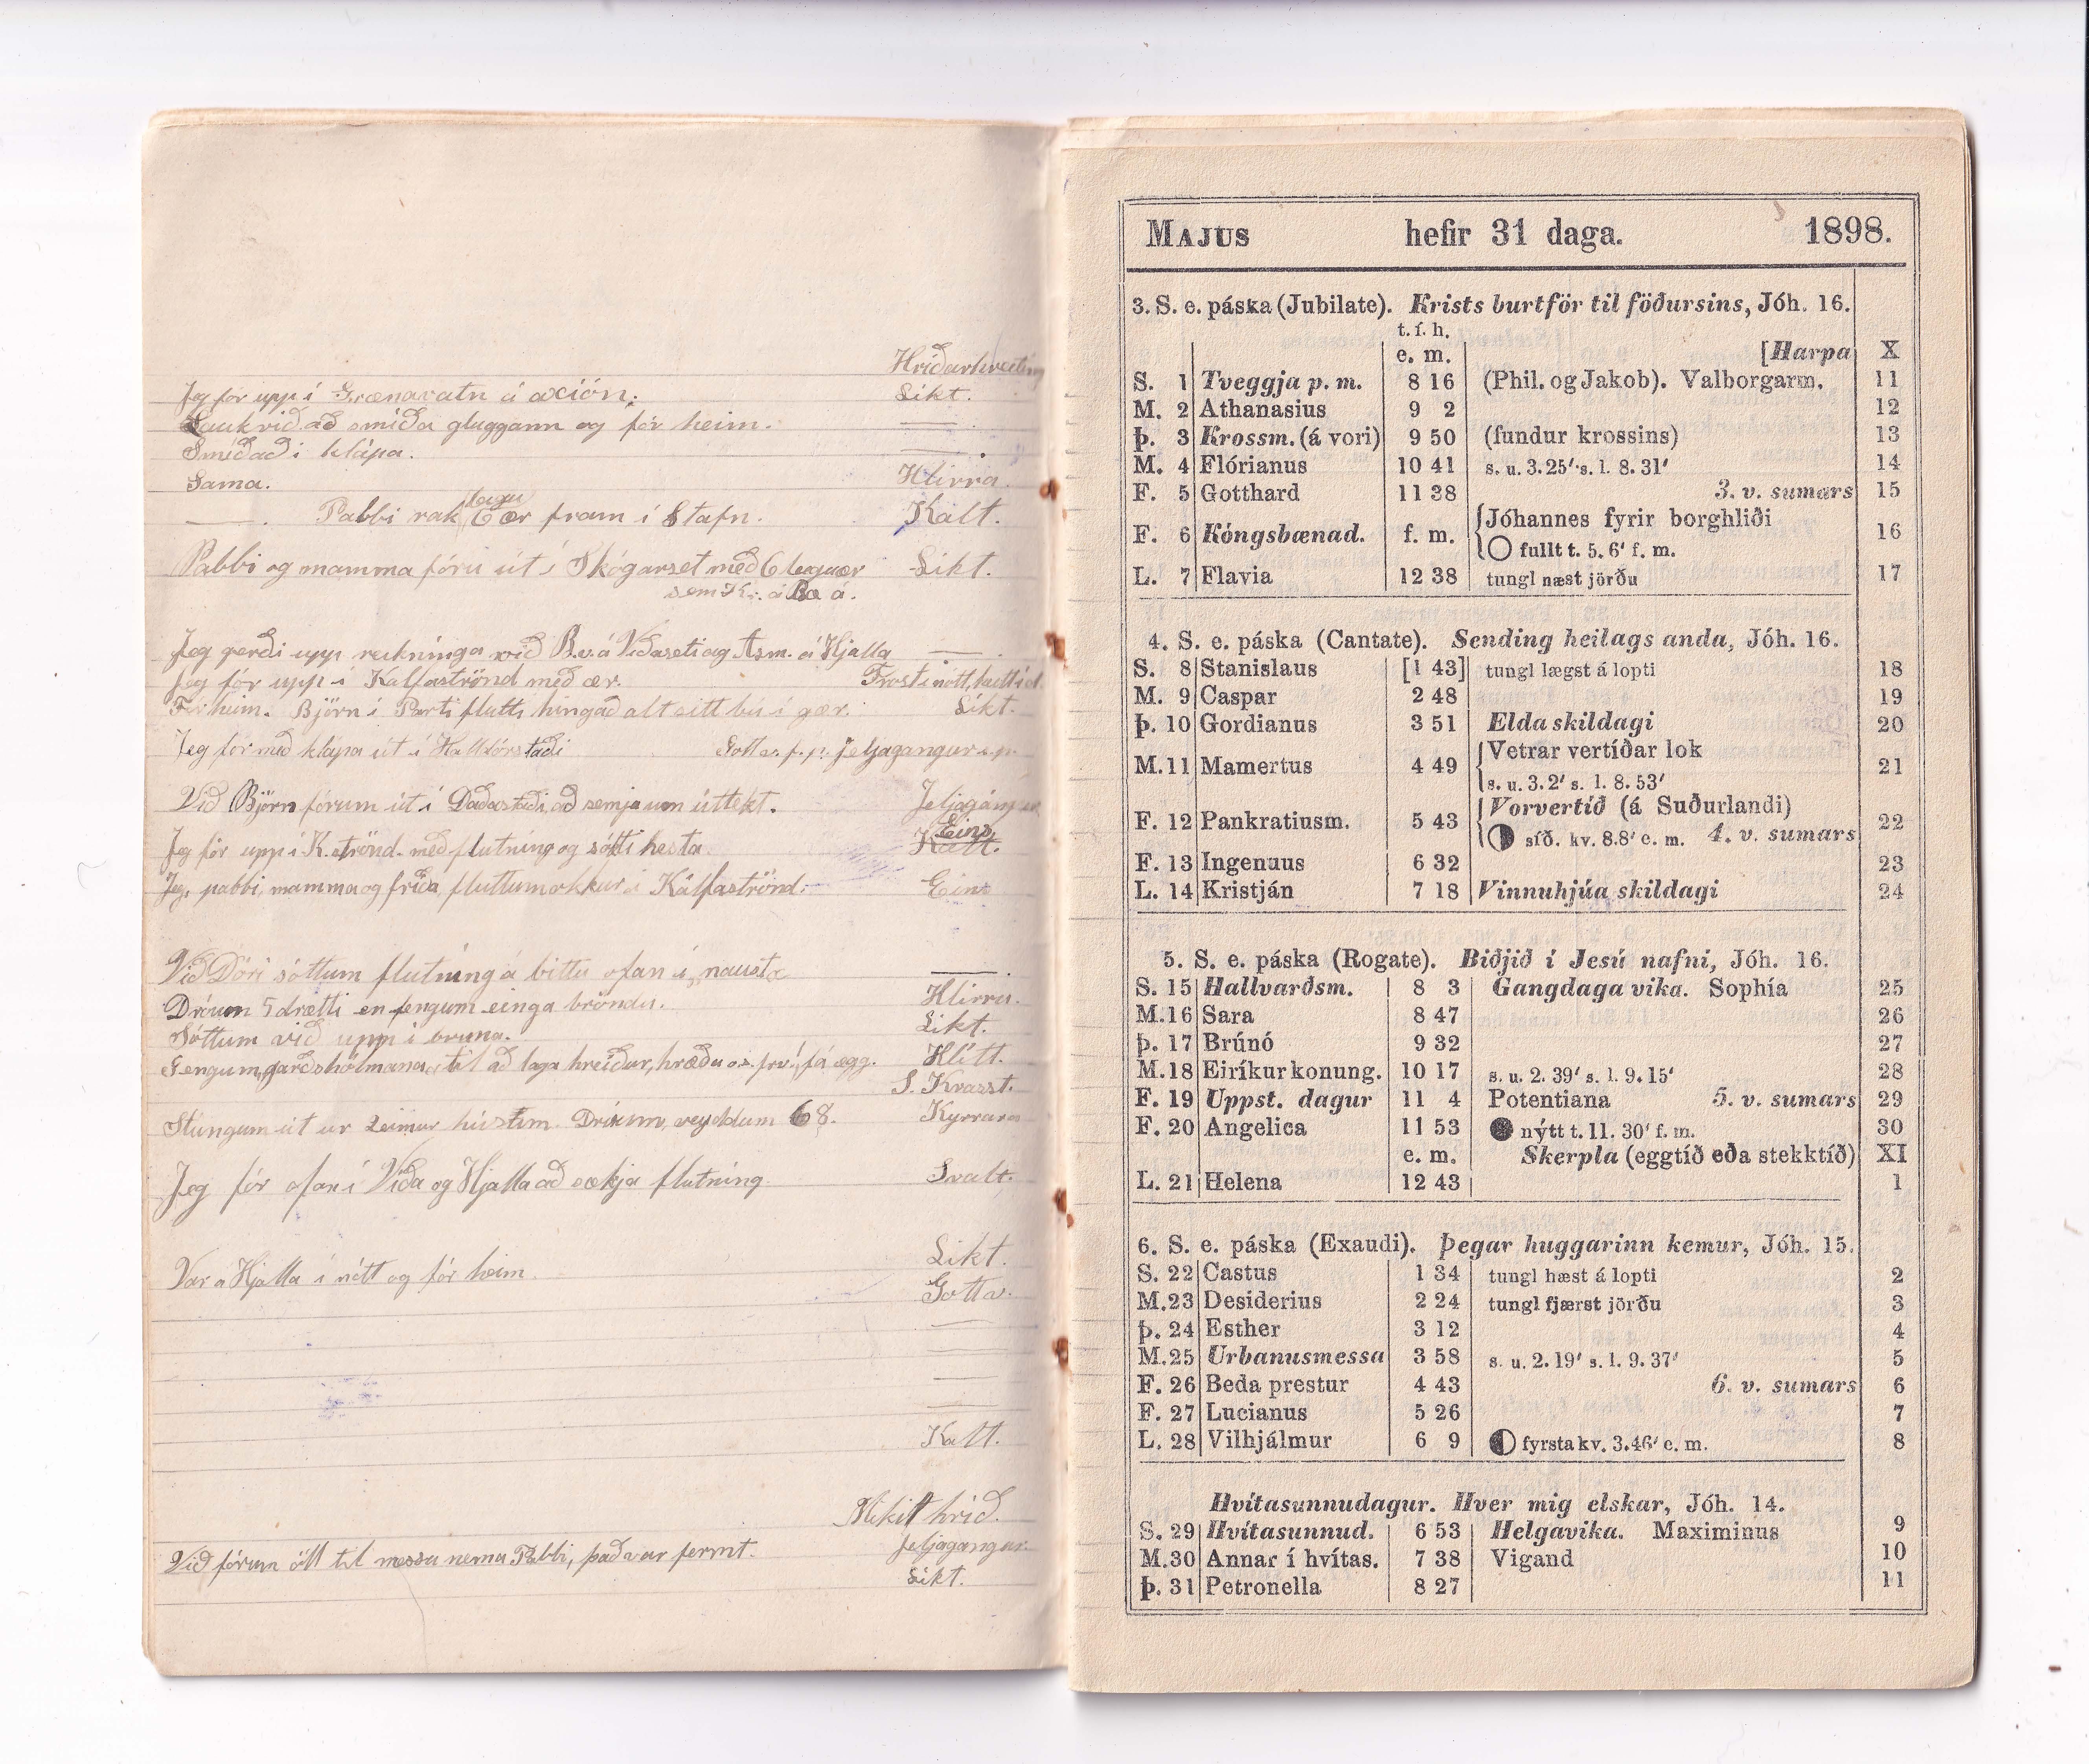 Hríðarhreiting
Jeg fór upp í Grænavatn á axión. Líkt.
Lauk við að smíða gluggann og fór heim. —
Smíðaði klápa. —
Sama. Hlirra.
—. Pabbi rak lagu 6 ær fram í Stafn. Kalt.
Pabbi og mamma fóru út í Skógarsel með 6 laguær Líkt.
sem Kr. á Bæ á.
Jeg gerði upp reikninga við B. v. á Viðaseli og Asm. á Hjalla —.
Jeg fór upp í Kálfaströnd með ær. Frost í nótt,
Fór heim. Björn í Parti flutti hingað alt sitt bú í gær. Líkt.
Jeg fór með klápa út í Halldórstaði Gott e. p. p. jeljagangur
Við Björn fórum út í Daðastaði að semja um úttekt. Jeljagángur
Jeg fór upp í K.strönd með flutning og sótti hesta. Kalt. Eins
Jeg, pabbi, mamma og fríða, fluttum okkur í Kálfaströnd. Eins
Við Dóri sóttum flutning á bittu ofan í „nausta —.
Dróum 5 drætti en fengum einga bröndu. Hlirra.
Sóttum við upp í bruna. Líkt.
Gengum garðshólmana til að laga hreiður, hræðu o.s.frv. fá egg. Hlítt.
S. Kvasst.
Stungum út úr 2eimur hústum. Dróum, veyddum 68. Kyrrara
Jeg fór ofan í Viða og Hjalla að sækja flutning. Svalt.
Líkt.
Var á Hjalla í nótt og fór heim. Gotta.
—
—
—
—
Kalt.
Mikil hríð.
Við fórum öll til messu nema Pabbi, það var fermt. Jeljagangur
Líkt.
MAJUS hefir 31 daga. 1898.
3. S. e. páska (Jubilate). Krists burtför til föðursins, Jóh. 16.
t. í. h.
e. m. [Harpa X
S. 1 Tveggja p. m. 8 16 (Phil. og Jakob). Valborgarm. 11
M. 2 Athanasius 9 2 12
Þ. 3 Krossm. (á vori) 9 50 (fundur krossins) 13
M. 4 Flórianus 10 41 s. u. 3. 25′ s. l. 8. 31′ 14
F. 5 Gotthard 11 38 3. v. sumars 15
F. 6 Kóngsbænad. f. m. Jóhannes fyrir borghliði 16
fullt t. 5. 6′ f. m.
L. 7 Flavia 12 38 tungl næst jörðu 17
4. S. e. páska (Cantate). Sending heilags anda, Jóh. 16.
S. 8 Stanislaus [1 43] tungl lægst á lopti 18
M. 9 Caspar 2 48 19
Þ. 10 Gordianus 3 51 Eldaskildagi 20
M. 11 Mamertus 4 49 Vetrar vertíðar lok 21
s. u. 3. 2′ s. l. 8. 53′
F. 12 Pankratiusm. 5 43 Vorvertíð (á Suðurlandi) 22
síð. kv. 8. 8′ e. m. 4. v. sumars
F. 13 Ingenuus 6 32 23
L. 14 Kristján 7 18 Vinnuhjúa skildagi 24
5. S. e. páska (Rogate). Biðjið í Jesú nafni, Jóh. 16.
S. 15 Hallvarðsm. 8 3 Gangdaga vika. Sophía 25
M. 16 Sara 8 47 26
Þ. 17 Brúnó 9 32 27
M. 18 Eiríkur konung. 10 17 s. u. 2. 39′ s. l. 9. 15′ 28
F. 19 Uppst. dagur 11 4 Potentiana 5. v. sumars 29
F. 20 Angelica 11 53 nýtt t. 11. 30′ f. m. 30
e. m. Skerpla (eggtíð eða stekktíð) XI
L. 21 Helena 12 43 1
6. S. e. páska (Exaudi). Þegar huggarinn kemur, Jóh. 15.
S. 22 Castus 1 34 tungl hæst á lopti 2
M. 23 Desiderius 2 24 tungl fjærst jörðu 3
Þ. 24 Esther 3 12 4
M. 25 Urbanusmessa 3 58 s. u. 2. 19′ s. l. 9. 37′ 5
F. 26 Beda prestur 4 43 6. v. sumars 6
F. 27 Lucianus 5 26 7
L. 28 Vilhjálmur 6 9 fyrsta kv. 3. 46′ e. m. 8
Hvítasunnudagur. Hver mig elskar, Jóh. 14.
S. 29 Hvítasunnud. 6 53 Helgavika. Maximinus 9
M. 30 Annar í hvítas. 7 38 Vigand 10
Þ. 31 Petronella 8 27 11